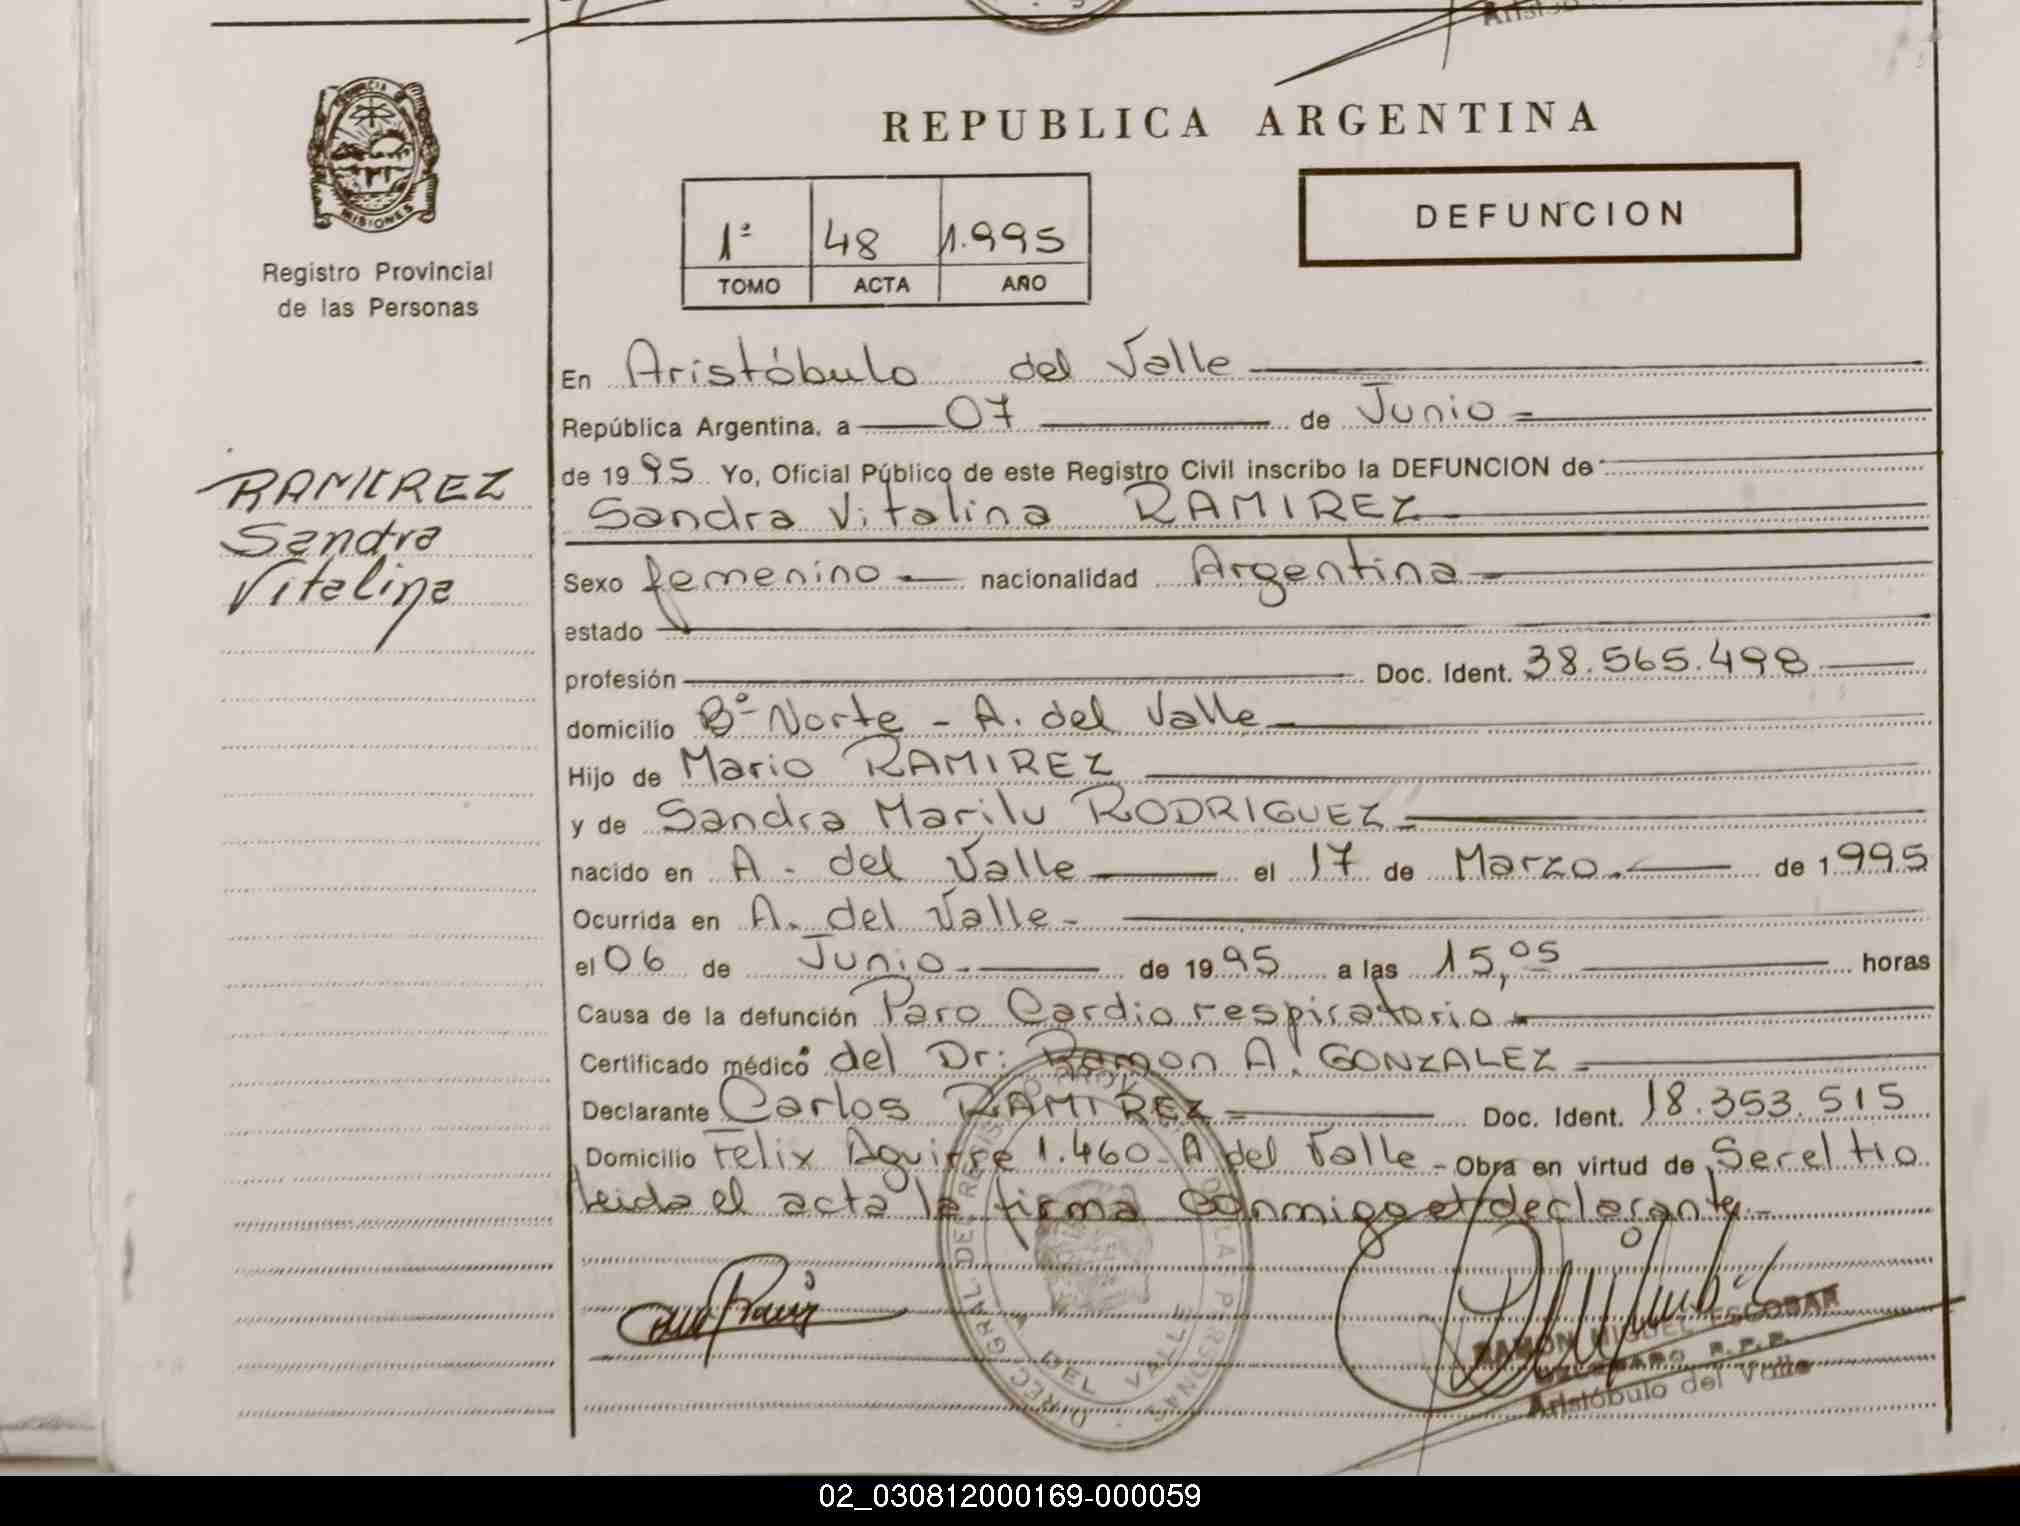 Aristóbu
PROVINCIA DE
MISIONES
Registro Provincial
de las Personas
REPUBLICA ARGENTINA
1º 48 1.995
TOMO ACTA AÑO
DEFUNCION
RAMIREZ
Sandra
Vitalina
En Aristóbulo del Valle
República Argentina, a 07 de Junio
de 1995 Yo, Oficial Público de este Registro Civil inscribo la DEFUNCION de
Sandra Vitalina RAMIREZ
Sexo femenino nacionalidad Argentina
estado
profesión Doc. Ident. 38.565.498
domicilio Bº Norte - A. del Valle
Hijo de Mario RAMIREZ
y de Sandra Marilu RODRIGUEZ
nacido en A. del Valle el 17 de Marzo. de 1995
Ocurrida en A. del Valle-
el 06 de Junio. de 1995 a las 15,05 horas
Causa de la defunción Paro Cardio respiratorio.
Certificado médico del Dr: Ramon A. GONZALEZ
Declarante Carlos RAMIREZ Doc. Ident. 18.353.515
Domicilio Felix Aguirre 1.460 A del Valle - Obra en virtud de Ser el tio
leida el acta la firma conmigo el declarante-
DIRECC. GRAL. DEL REGISTRO PROV. DE LAS PERSONAS
DEL VALLE
RAMON MIGUEL ESCOBAR
R.P.P.
Aristóbulo del Valle
02_030812000169-000059